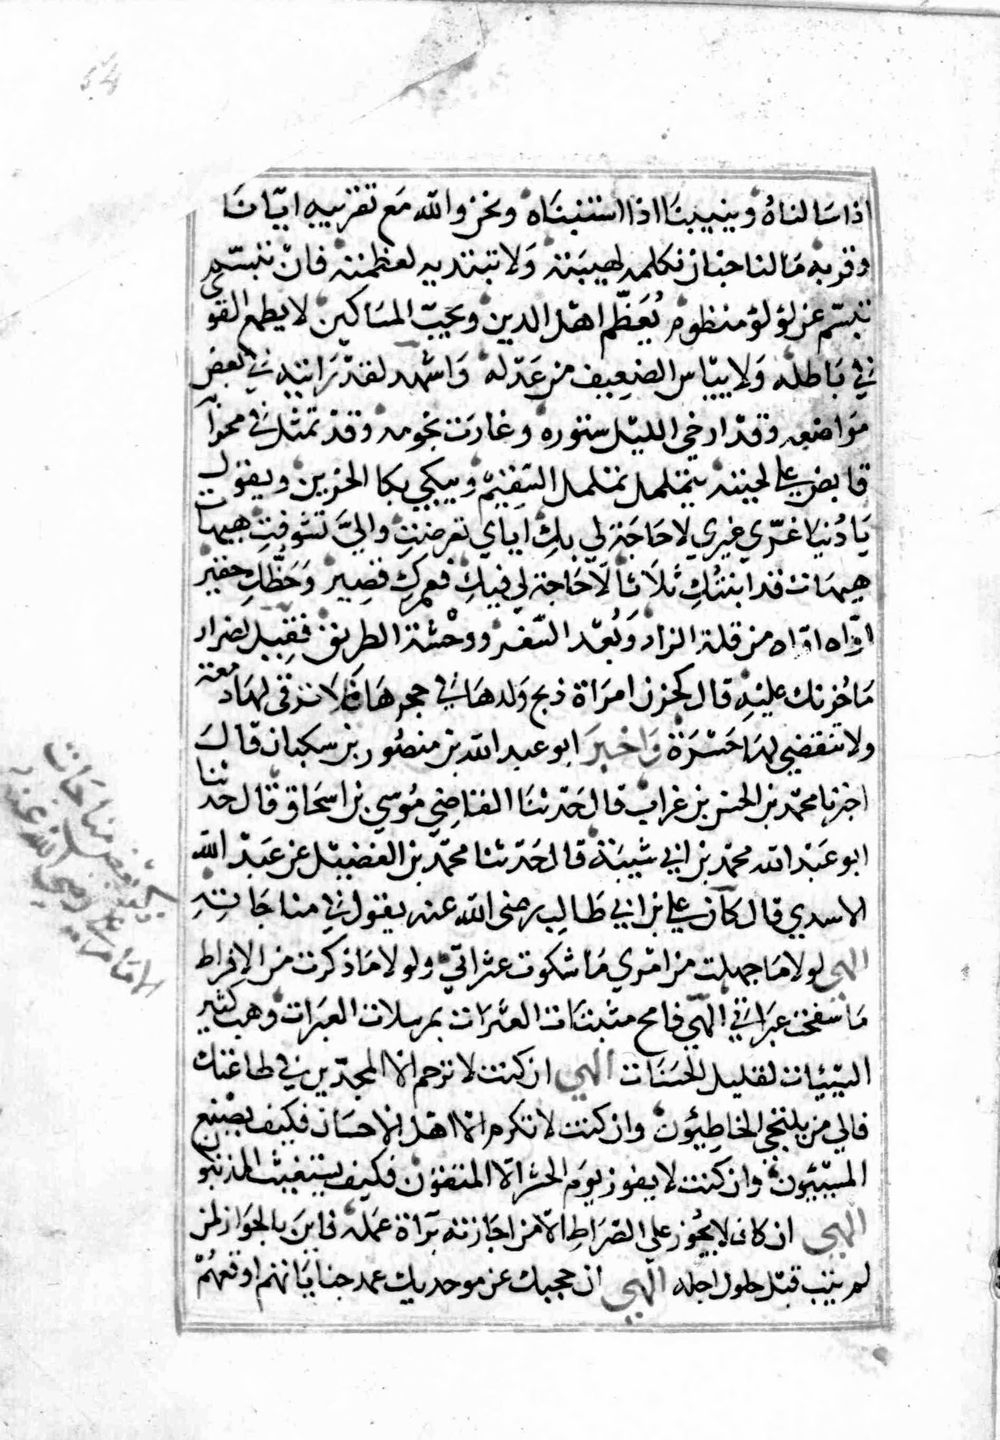 54
اذا سالناه وينيبنا اذا استنبناه ونحن والله مع تقريبه ايانا
وقربه منا لنا حنان نكلمه لهيبته ولا نبتديه لعظمته فان تبسم
تبسم عن لؤلؤ منظوم يُعَظّم اهل الدين ويحب المساكين لا يطمع القوي
في باطله ولا ييأس الضعيف من عدله واشهد لقد رايته في بعض
مواضعه وقد ارخى الليل ستوره وغارت نجومه وقد تمثل في محرابه
قابض على لحيته يتململ تململ السقيم ويبكي بكا الحزين ويقول
يا دنيا غرّي غيري لا حاجة لي بكِ اياي تعرضتِ واليّ تشوفتِ هيهات
هيهات قد ابنتكِ ثلاثا لا حاجة لي فيكِ فعمركِ قصير وحظكِ حقير
اوّاه اوّاه من قلة الزاد وبُعد السّفر ووحشة الطريق فقيل لضرار
ما حُزنك عليه قال كحزن امراة ذبح ولدها في حجرها فلا ترقى لها دمعة
ولا تنقضي لها حسرة واخبر ابو عبد الله بن منصور بن سكبان قال
اخبرنا محمد بن الحسن بن غراب قال حدثنا القاضي موسى بن اسحاق قال حدثنا
ابو عبد الله محمد بن ابي شيبة قال حدثنا محمد بن الفضيل عن عبد الله
الاسدي قال كان علي بن ابي طالب رضى الله عنه يقول في مناجاته
الهي لولا ما جهلت من امري ما شكوت عثراتي ولولا ما ذكرت من الافراط
ما سفحت عبراتي الهي فامح مثبتات العثرات بمرسلات العبرات وهب كثير
السيّئات لقليل الحسنات الهي ان كنت لا ترحم الا المجدّين في طاعتك
فالي من يلتجي الخاطئون وان كنت لا تكرم الا اهل الاحسان فكيف يصنع
المسيئون وان كنت لا يفوز يوم الحشر الا المتقون فكيف يستغيث المذنبون
الهي ان كان لا يجوز على الصراط الا من اجازته براة عمله فاين بالجواز لمن
لم يتب قبل حلول اجله الهي ان حجبك عن موحديك عمد جناياتهم اوقعهُمْ
مناجات
الامام علي رضي الله عنه